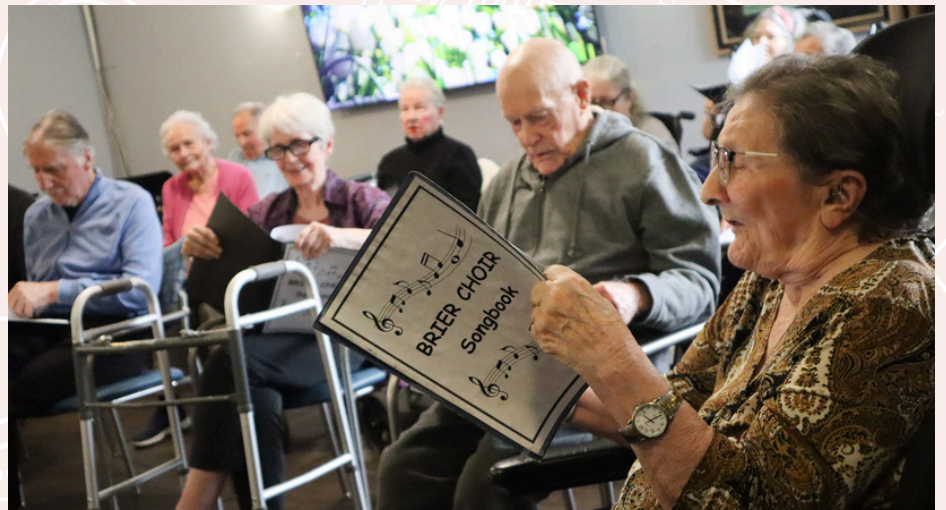 BRIER CHOIR
Songbook